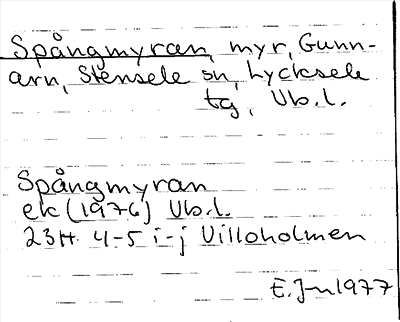 Spångmyran, myr, Gunn-
arn, Stensele sn, Lycksele
tg, Vb.l.
Spångmyran
ek (1976) Vb.l.
23H 4-5 i-j Villoholmen
E.J-n 1977